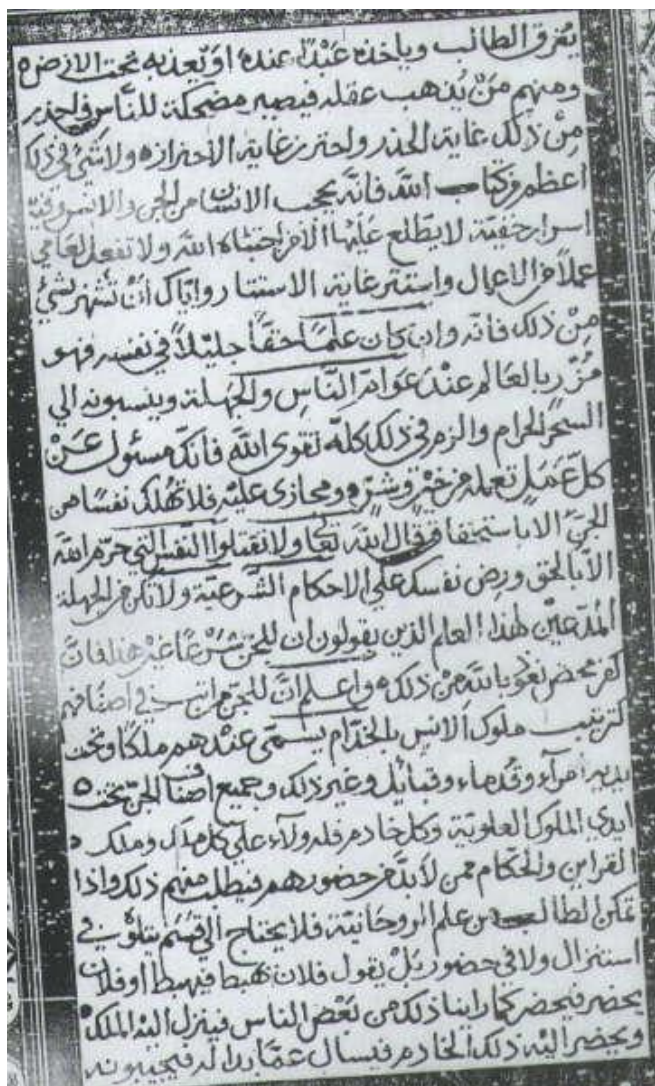 يغرق الطالب وياخذه عبدًا عنده او يعذبه تحت الارض ه
ومنهم مَنْ يُذهب عقله فيصير مضحكة للنَّاس فاحذر
مِنْ ذلك غاية الحذر واحترز غاية الاحتراز ه ولا شيْ في ذلك
اعظم من كتاب الله فانه يحجب الانسان من الجن والانس وفيه
اسرار خفيّة لا يطّلع عَليْها الّا من اجتباه الله ولا تفعل لعامي
عملاً من الاعمال واستتر غاية الاستتار واياك انْ تشهر بشيْ
مِنْ ذلك فانه وان كان عَلمًا حقًا جليلاً في نفسه فهو
مُزْرٍ بالعالم عنْدَ عَوام النَّاسِ والجهلة وينسبونه الي
السحر الحرام والزم في ذلك كلّه تقوى اللهَ فانك مسئول عَنْ
كلّ عَمَلٍ تعمله من خيْرٍ وشرٍّ ه ومجازى عليْه فلا تهلك نفسًا من
الجنّ الا باستحقاق قال الله تعا ولا تقتلوا النّفس التي حرّم الله
الّا بالحق ورض نفسك علي الاحكام الشرعيّة ولا تكن من الجهلة
المدّعين لهذا العلم الذين يقولون ان للجن شرْعًا غيْر هذا فانّ
كفر محض نعوذ بالله من ذلك ه واعلم انّ للجن مراتب في اصنافهم
كترتيب ملوك الانس بالخدّام يسمى عندهم ملكًا وتحت
يديه امرآء وقدماء وقبايل وغير ذلك وجميع اصناف الجن تحت ه
ايدي الملوك العلويّة وكل خادم فله ولآء علي كل ملك
القراين والحكام ممن لا بدّ من حضورهم فيطلب منهم ذلك واذا
تمكن الطالب من علم الروحانية فلا يحتاج الي قسَم يتلوه في
استنزال ولا في حضور بَلْ يقول فلان تهبط فيهبط او فلان
يحضر فيحضر كما راينا ذلك من بعض الناس فينزل اليه الملك
ويحضر اليْه ذلك الخادم فيسال عمّا بدا له فيجيبونه